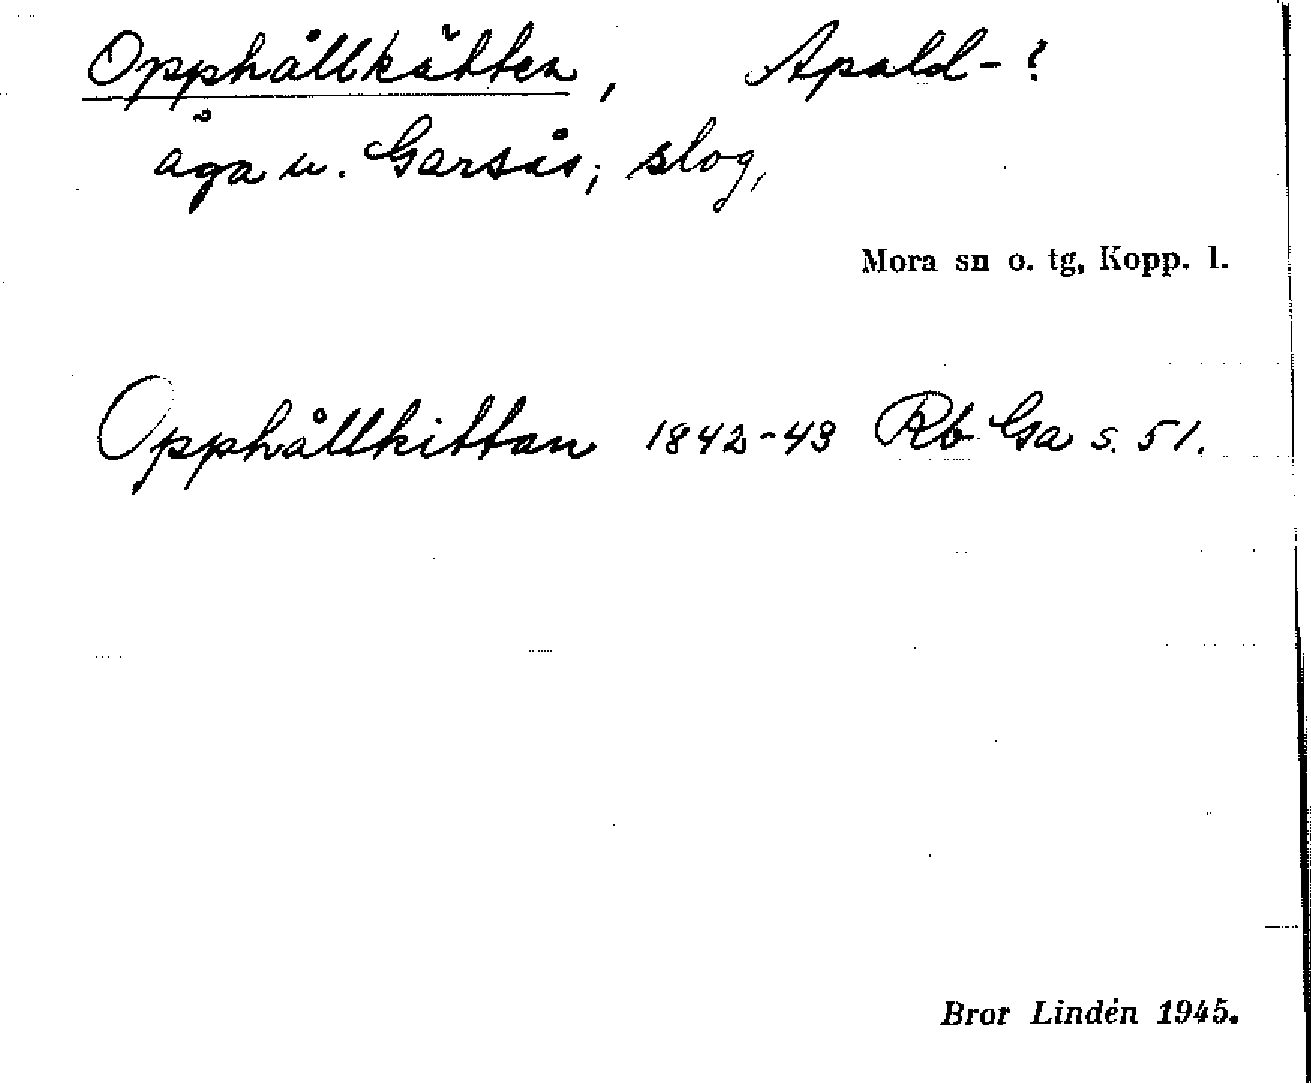 Opphållkätten, Apald-?
åga u. Garsås; slog,
Mora sn o. tg, Kopp. l.
Opphållkittan 1842-43 Rb Ga s. 51.
Bror Lindén 1945.